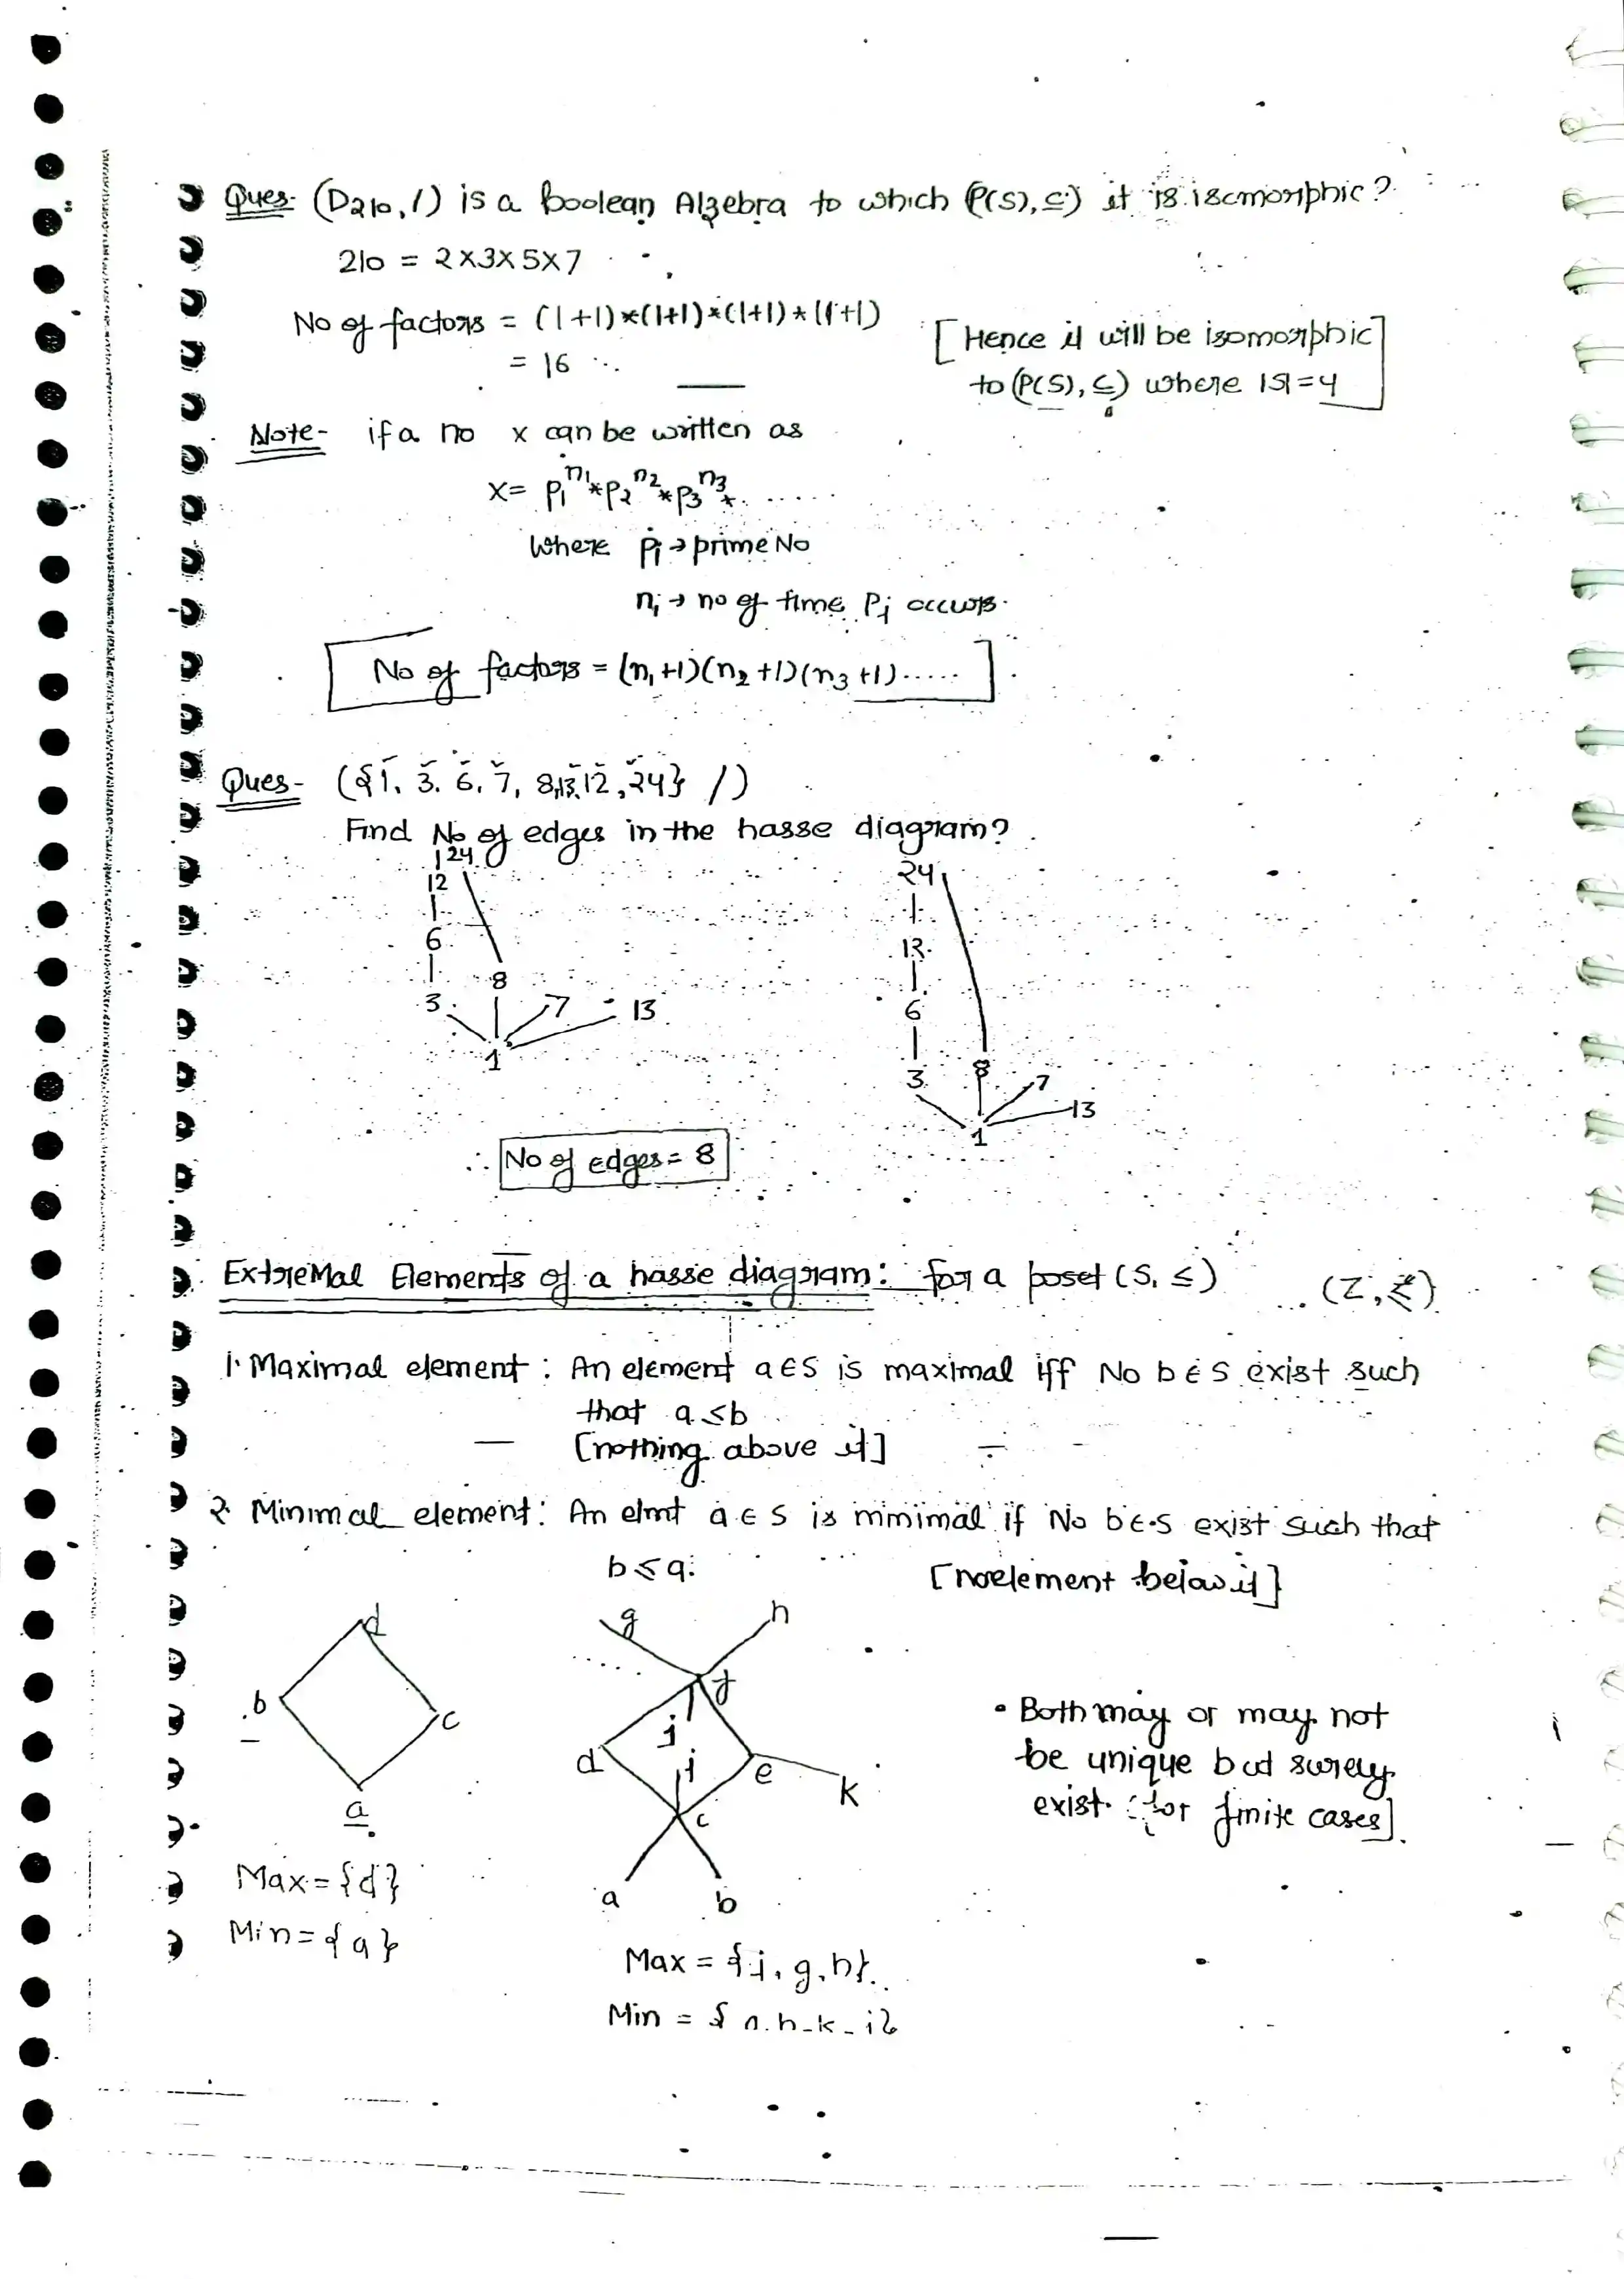 Ques- (D210, /) is a boolean Algebra to which (P(S), ⊆) it is isomorphic?
210 = 2×3×5×7
No of factors = (1+1)*(1+1)*(1+1)*(1+1)
= 16
[Hence it will be isomorphic
to (P(S), ⊆) where |S|=4]
Note- if a no x can be written as
x = p₁^n₁ * p₂^n₂ * p₃^n₃ * ......
Where pᵢ → prime No
nᵢ → no of time Pᵢ occurs.
[No of factors = (n₁+1)(n₂+1)(n₃+1).....]
Ques- ({1, 3, 6, 7, 8, 13, 12, 24} /)
Find No of edges in the hasse diagram?
24
12
6
8
3 7 13
1
24
12
6
3 8 7
13
1
∴ No of edges = 8
Extremal Elements of a hasse diagram: for a poset (S, ≤)
1. Maximal element : An element a∈S is maximal iff No b∈S exist such
that a≤b
[nothing above it]
2 Minimal element: An elmt a∈S is minimal if No b∈S exist such that
b≤a.
[no element below it]
d
b
c
a
Max = {d}
Min = {a}
g h
f
j
d i e
k
c
a b
Max = {j, g, h}.
• Both may or may not
be unique but surely
exist [for finite cases].